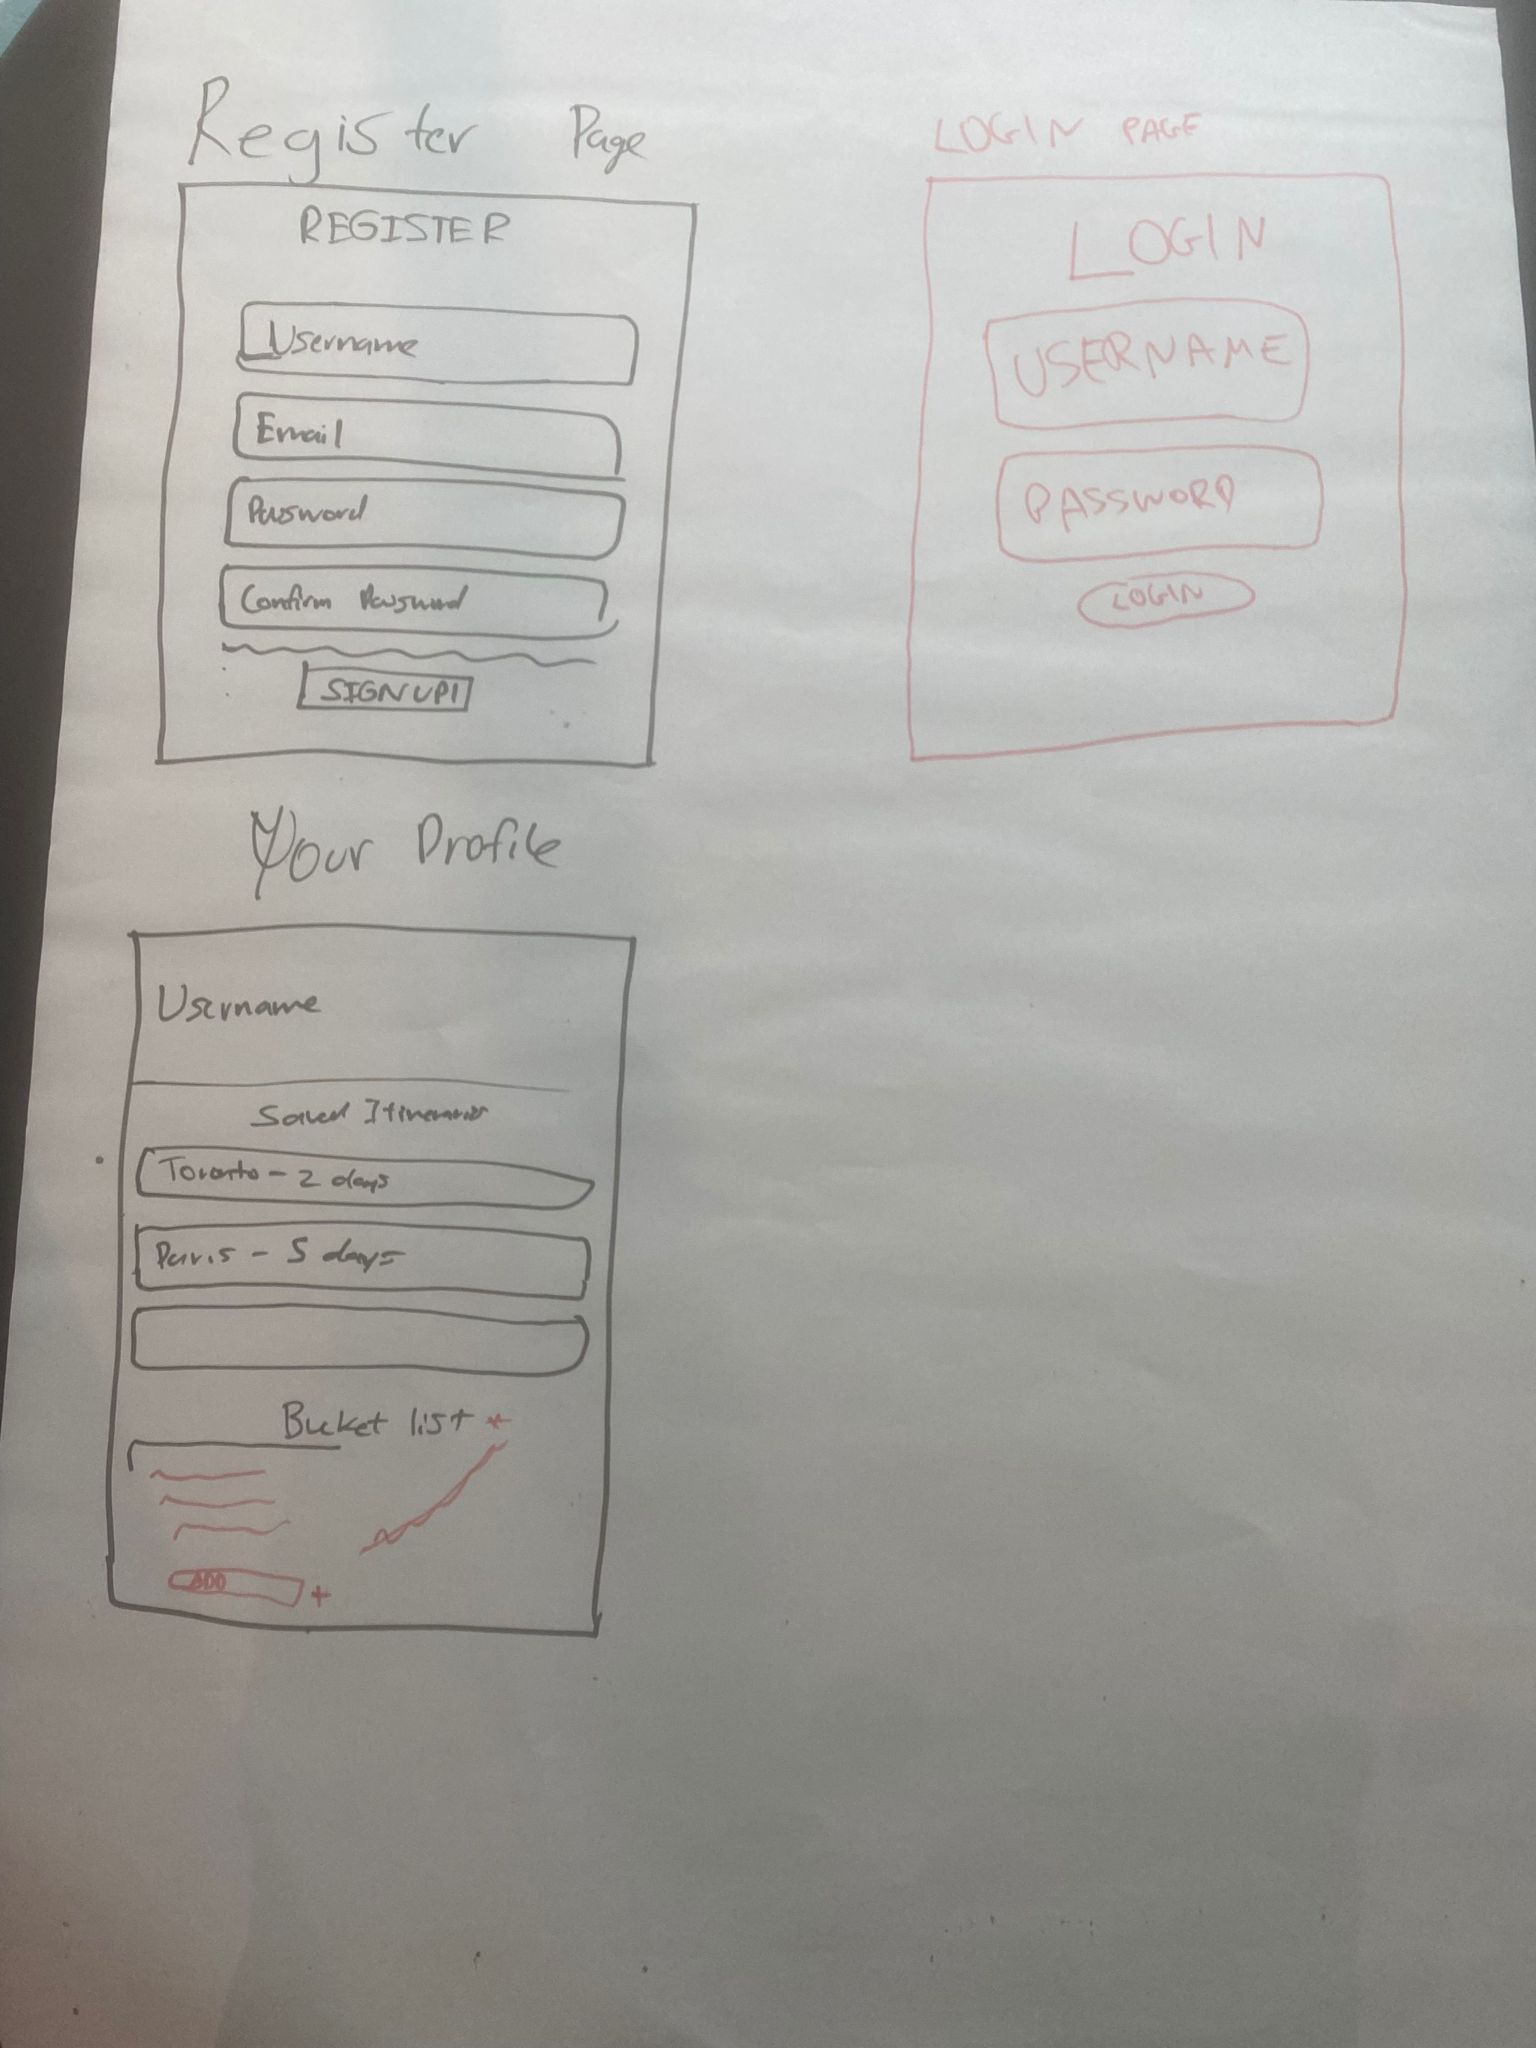 Register Page
REGISTER
Username
Email
Password
Confirm Password
SIGN UP!
LOGIN PAGE
LOGIN
USERNAME
PASSWORD
LOGIN
Your Profile
Username
Saved Itineraries
Toronto - 2 days
Paris - 5 days
Bucket list *
ADD +